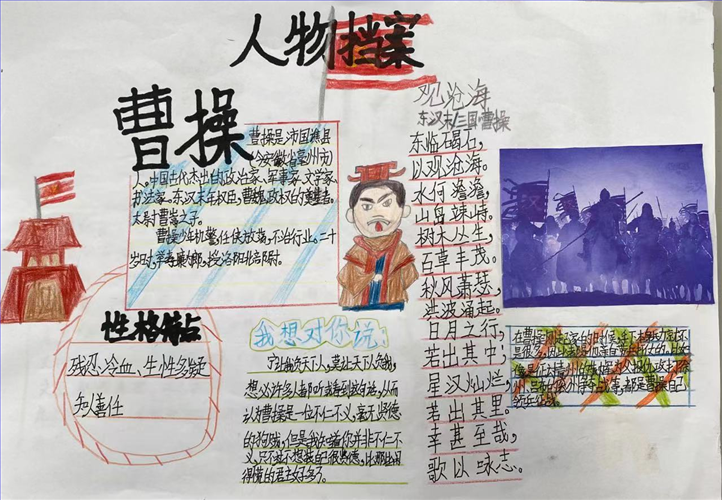 人物挡案
曹操
曹操是沛国谯县
(今安徽省亳州市)
人。中国古代杰出的政治家、军事家、文学家、
书法家。东汉末年权臣,曹魏政权的奠基者。
太尉曹嵩之子。
曹操少年机警,任侠放荡,不治行业。二十
岁时,举孝廉为郎,授洛阳北部尉。
性格特点
残忍、冷血、生性多疑
知人善任
我想对你说:
宁让我负天下人,莫让天下人负我,
想必许多人都听或看到这句话,从而
认为曹操是一位不仁不义,毫无贤德
但是我知道你并非不仁不
义,只不过不想装自己很贤德,比那些
得懂的君主好多了。
观沧海
东汉末/三国·曹操
东临碣石,
以观沧海。
水何澹澹,
山岛竦峙。
树木丛生,
百草丰茂。
秋风萧瑟,
洪波涌起。
日月之行,
若出其中;
星汉灿烂,
若出其里。
幸甚至哉,
歌以咏志。